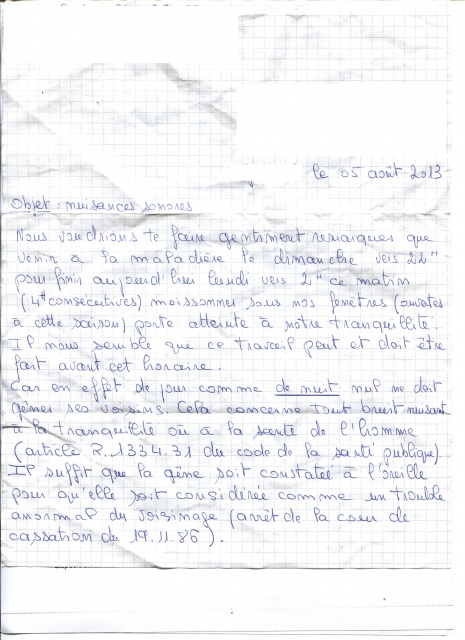 le 05 août 2013
Objet : nuisances sonores
Nous voudrions te faire gentiment remarquer que
venir à la maladière le dimanche vers 22H
pour finir aujourd'hui lundi vers 2H ce matin
(4H consécutives) moissonner sous nos fenêtres (ouvertes
à cette saison) porte atteinte à notre tranquillité.
Il nous semble que ce travail peut et doit être
fait avant cet horaire.
Car en effet de jour comme de nuit nul ne doit
gêner ses voisins. Cela concerne tout bruit nuisant
à la tranquillité ou à la santé de l'homme
(article R.1334.31 du code de la santé publique)
Il suffit que la gêne soit constatée à l'oreille
pour qu'elle soit considérée comme un trouble
anormal du voisinage (arrêt de la cour de
cassation du 19.11.86).